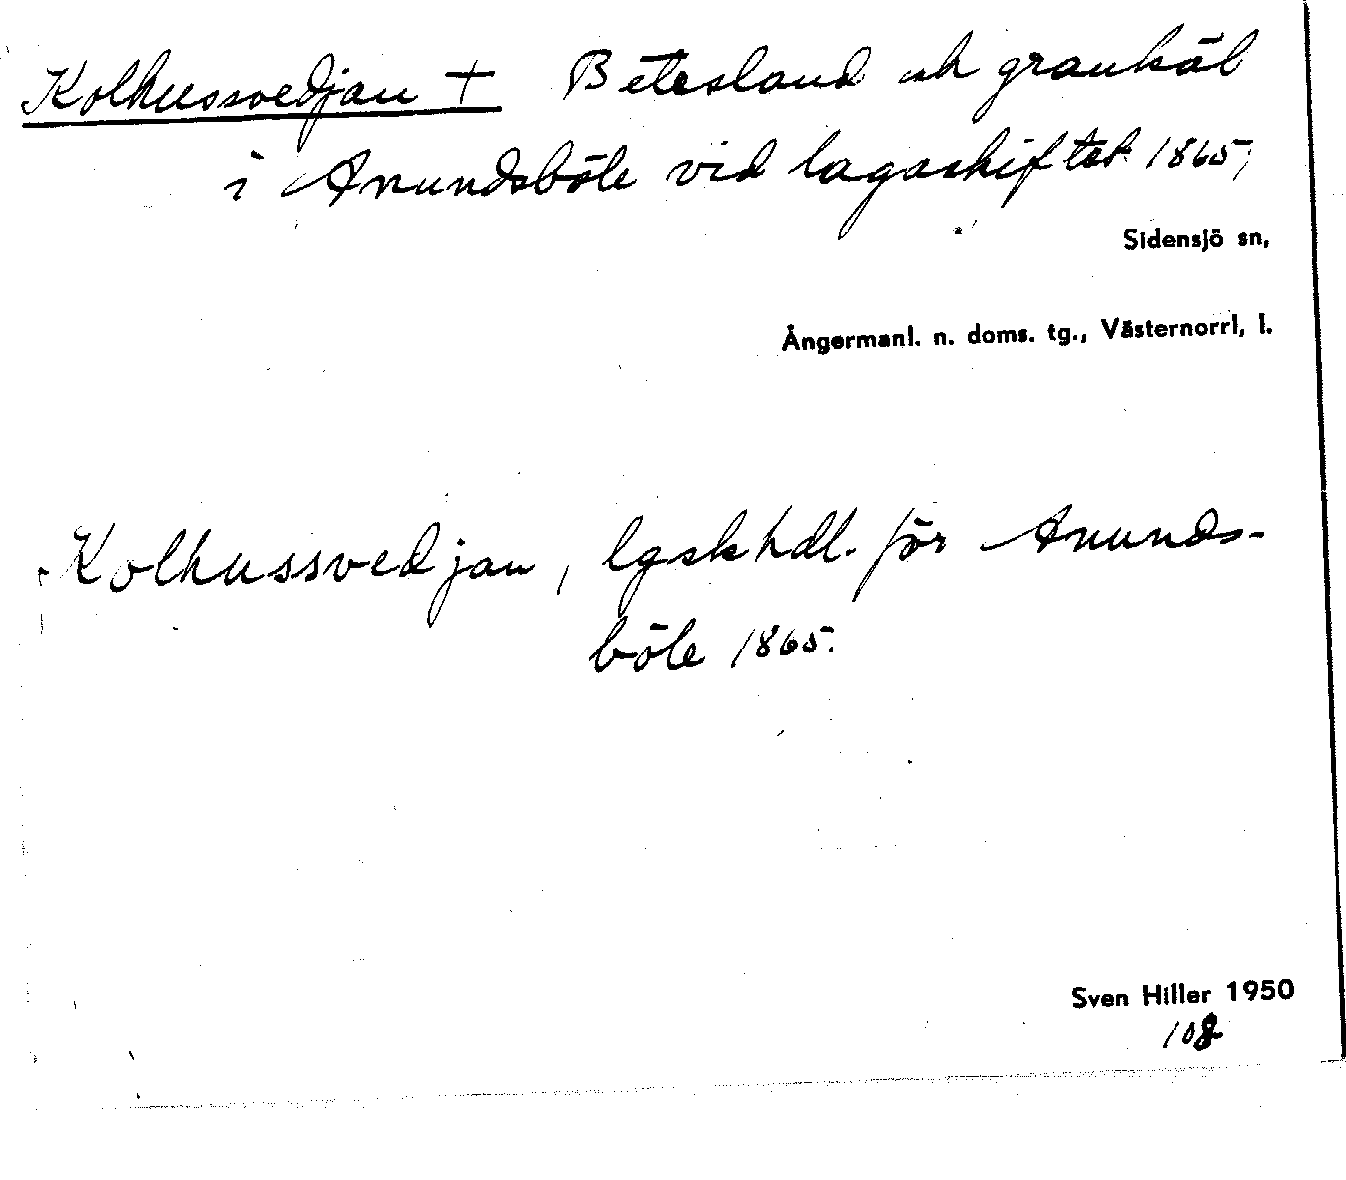 Kolhussvedjan + Betesland och grankäl
i Anundsböle vid lagaskiftet 1865,
Sidensjö sn,
Ångermanl. n. doms. tg., Västernorrl, l.
Kolhussvedjan, lgskhdl. för Anunds-
böle 1865.
Sven Hiller 1950
108